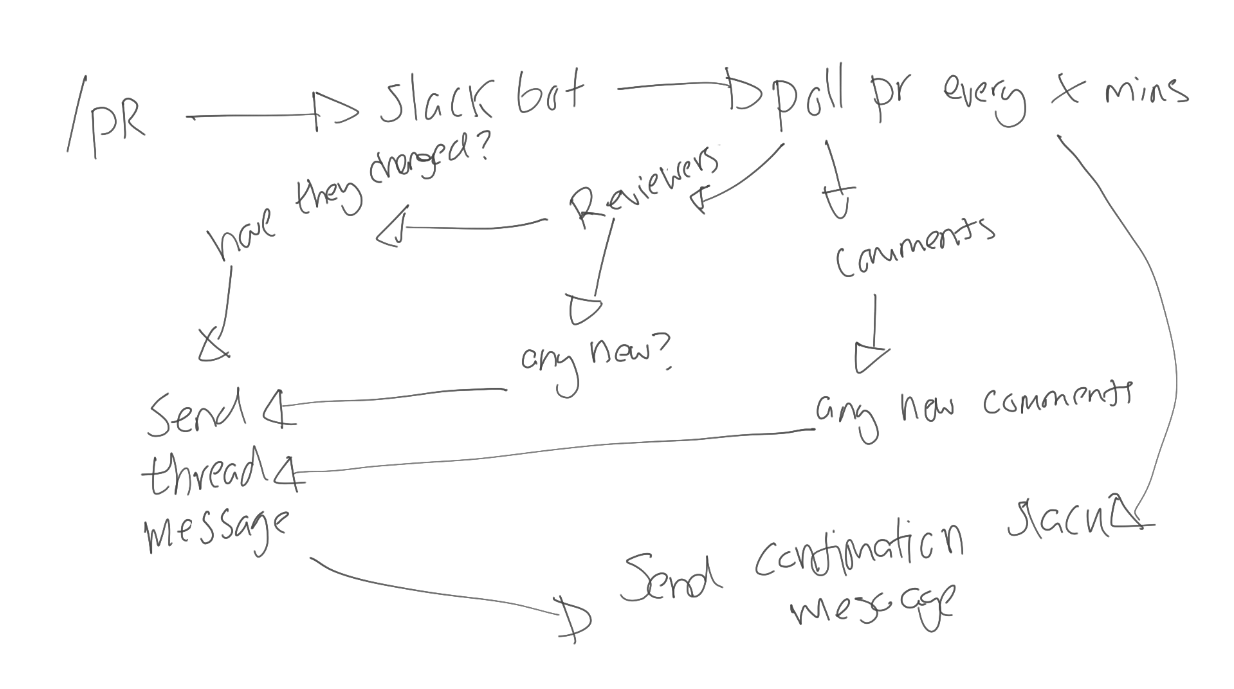 /PR
Slack bot
poll pr every x mins
have they changed?
Reviewers
comments
any new?
any new comments
Send
thread
message
Send confimation slack
message